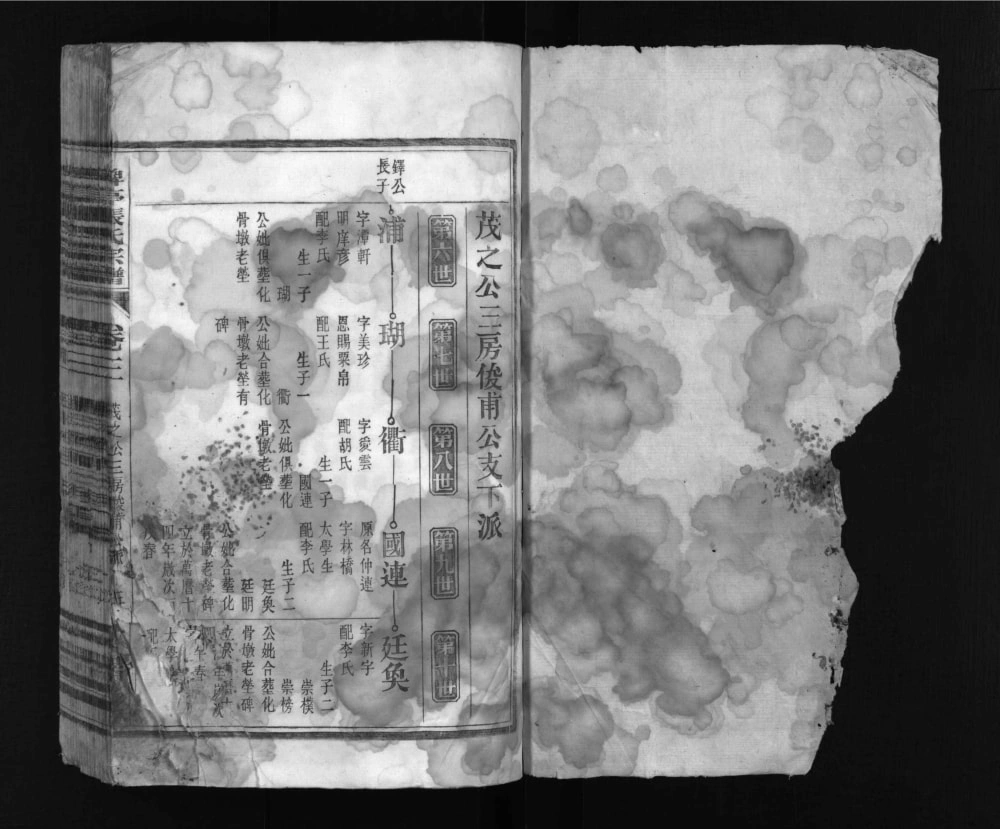 茂之公三房俊甫公支下派
第六世
第七世
第八世
第九世
第十世
鐸公
長子
浦
字潭軒
明庠彥
配李氏
生一子
瑚
公妣俱塟化
骨墩老塋
瑚
字美珍
恩賜粟帛
配王氏
生子一
衢
公妣合塟化
骨墩老塋有
碑
衢
字愛雲
配胡氏
生一子
國連
公妣俱塟化
骨墩老塋
國連
原名仲連
字林橋
太學生
配李氏
生子二
廷奐
廷明
公妣合塟化
骨墩老塋碑
立於萬曆十
四年歲次
春
廷奐
字新宇
配李氏
生子二
崇樸
崇榜
公妣合塟化
骨墩老塋碑
張氏宗譜
卷二
茂之公三房